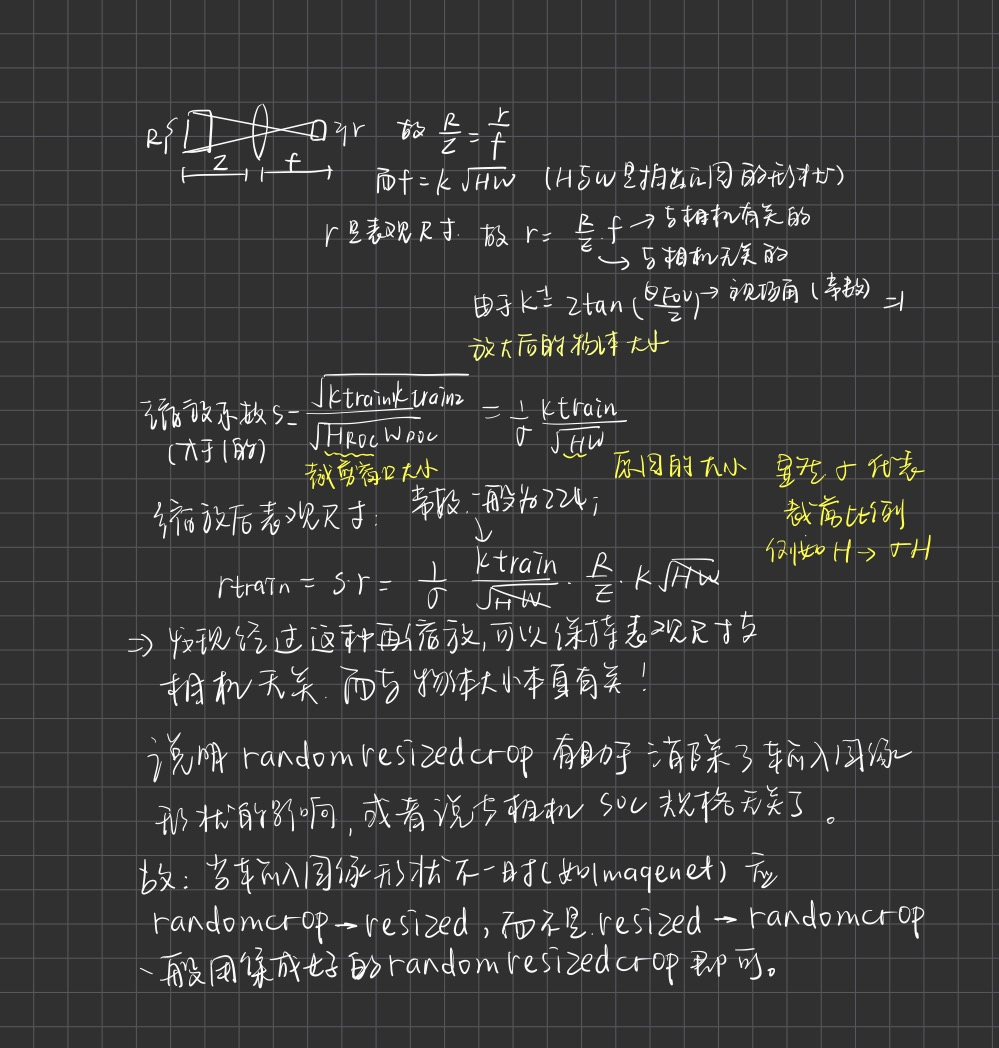 R { Z f } r 故 R/Z = r/f
而f = k √HW (H与W是相出元图的形状)
r是表观尺寸. 故 r = R/Z · f → 与相机有关的
→ 与相机无关的
由于 k⁻¹ = 2tan(θFOV/2) → 视场角(常数) =1
放大后的物体大小
缩放系数S = √ktrain ktrain2 / √HROC WROC = 1/σ ktrain/√HW
(大于1的)
裁剪窗口大小
原图的大小
这里σ代表
裁剪比例
例如H → σH
缩放后表观尺寸: 常数. 一般为224;
rtrain = s·r = 1/σ ktrain/√HW · R/Z · k√HW
⇒ 发现经过这种再缩放,可以保持表观尺寸与
相机无关. 而与物体大小本真有关!
说明 randomresizedcrop 有助于消除了输入图像
形状的影响,或者说与相机 soc 规格无关了。
故: 当输入图像形状不一时(如Imagenet) 应
randomcrop → resized, 而不是 resized → randomcrop
一般用集成好的randomresizedcrop 即可。